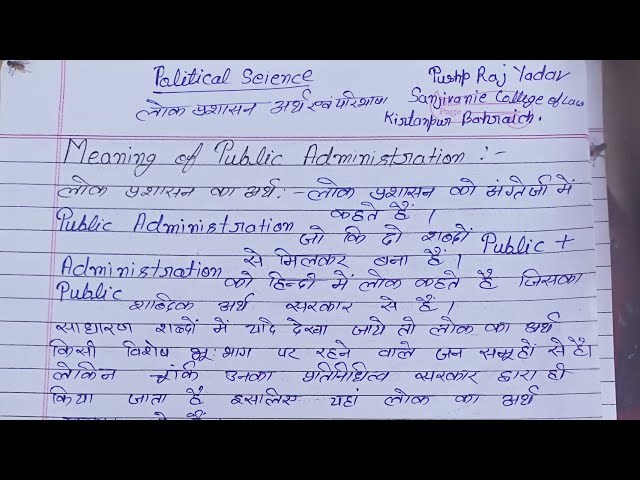 Political Science
Pushp Raj Yadav
लोक प्रशासन अर्थ एवं परिभाषा
Sanjivanie College of Law
Kirtanpur Bahraich.
Meaning of Public Administration :-
लोक प्रशासन का अर्थ :- लोक प्रशासन को अंग्रेजी में
Public Administration कहते हैं।
जो कि दो शब्दों Public +
Administration से मिलकर बना हैं।
Public को हिन्दी में लोक कहते हैं जिसका
शाब्दिक अर्थ सरकार से हैं।
साधारण शब्दों में यदि देखा जाये तो लोक का अर्थ
किसी विशेष भू-भाग पर रहने वाले जन समूहों से हैं।
लेकिन चूंकि उनका प्रतिनिधित्व सरकार द्वारा ही
किया जाता हैं इसलिए यहां लोक का अर्थ